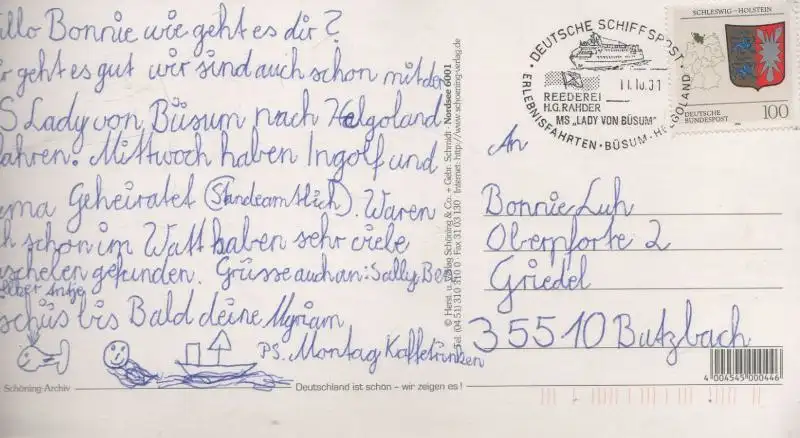 llo Bonnie wie geht es dir?
r geht es gut wir sind auch schon mit der
S Lady von Büsum nach Helgoland
ahren. Mittwoch haben Ingolf und
ma Geheiratet (Standeamtlich). Waren
h schon im Watt haben sehr viele
schelen gefunden. Grüsse auch an: Sally, Be
elber Antje
schüs bis Bald deine Myriam
PS. Montag Kaffetrinken
Schöning-Archiv
Deutschland ist schön – wir zeigen es!
© Herst. u. Verlag Schöning & Co. + Gebr. Schmidt · Nordsee 6001
Tel. (04 51) 310 310 0 · Fax 31 03 130 · Internet: http://www.schoening-verlag.de
DEUTSCHE SCHIFFSPOST
11.10.
REEDEREI
H.G. RAHDER
MS „LADY VON BÜSUM"
ERLEBNISFAHRTEN · BÜSUM · HELGOLAND
SCHLESWIG-HOLSTEIN
DEUTSCHE
BUNDESPOST
100
An
Bonnie Luh
Oberpforte 2
Griedel
35510 Butzbach
4 004545 000446